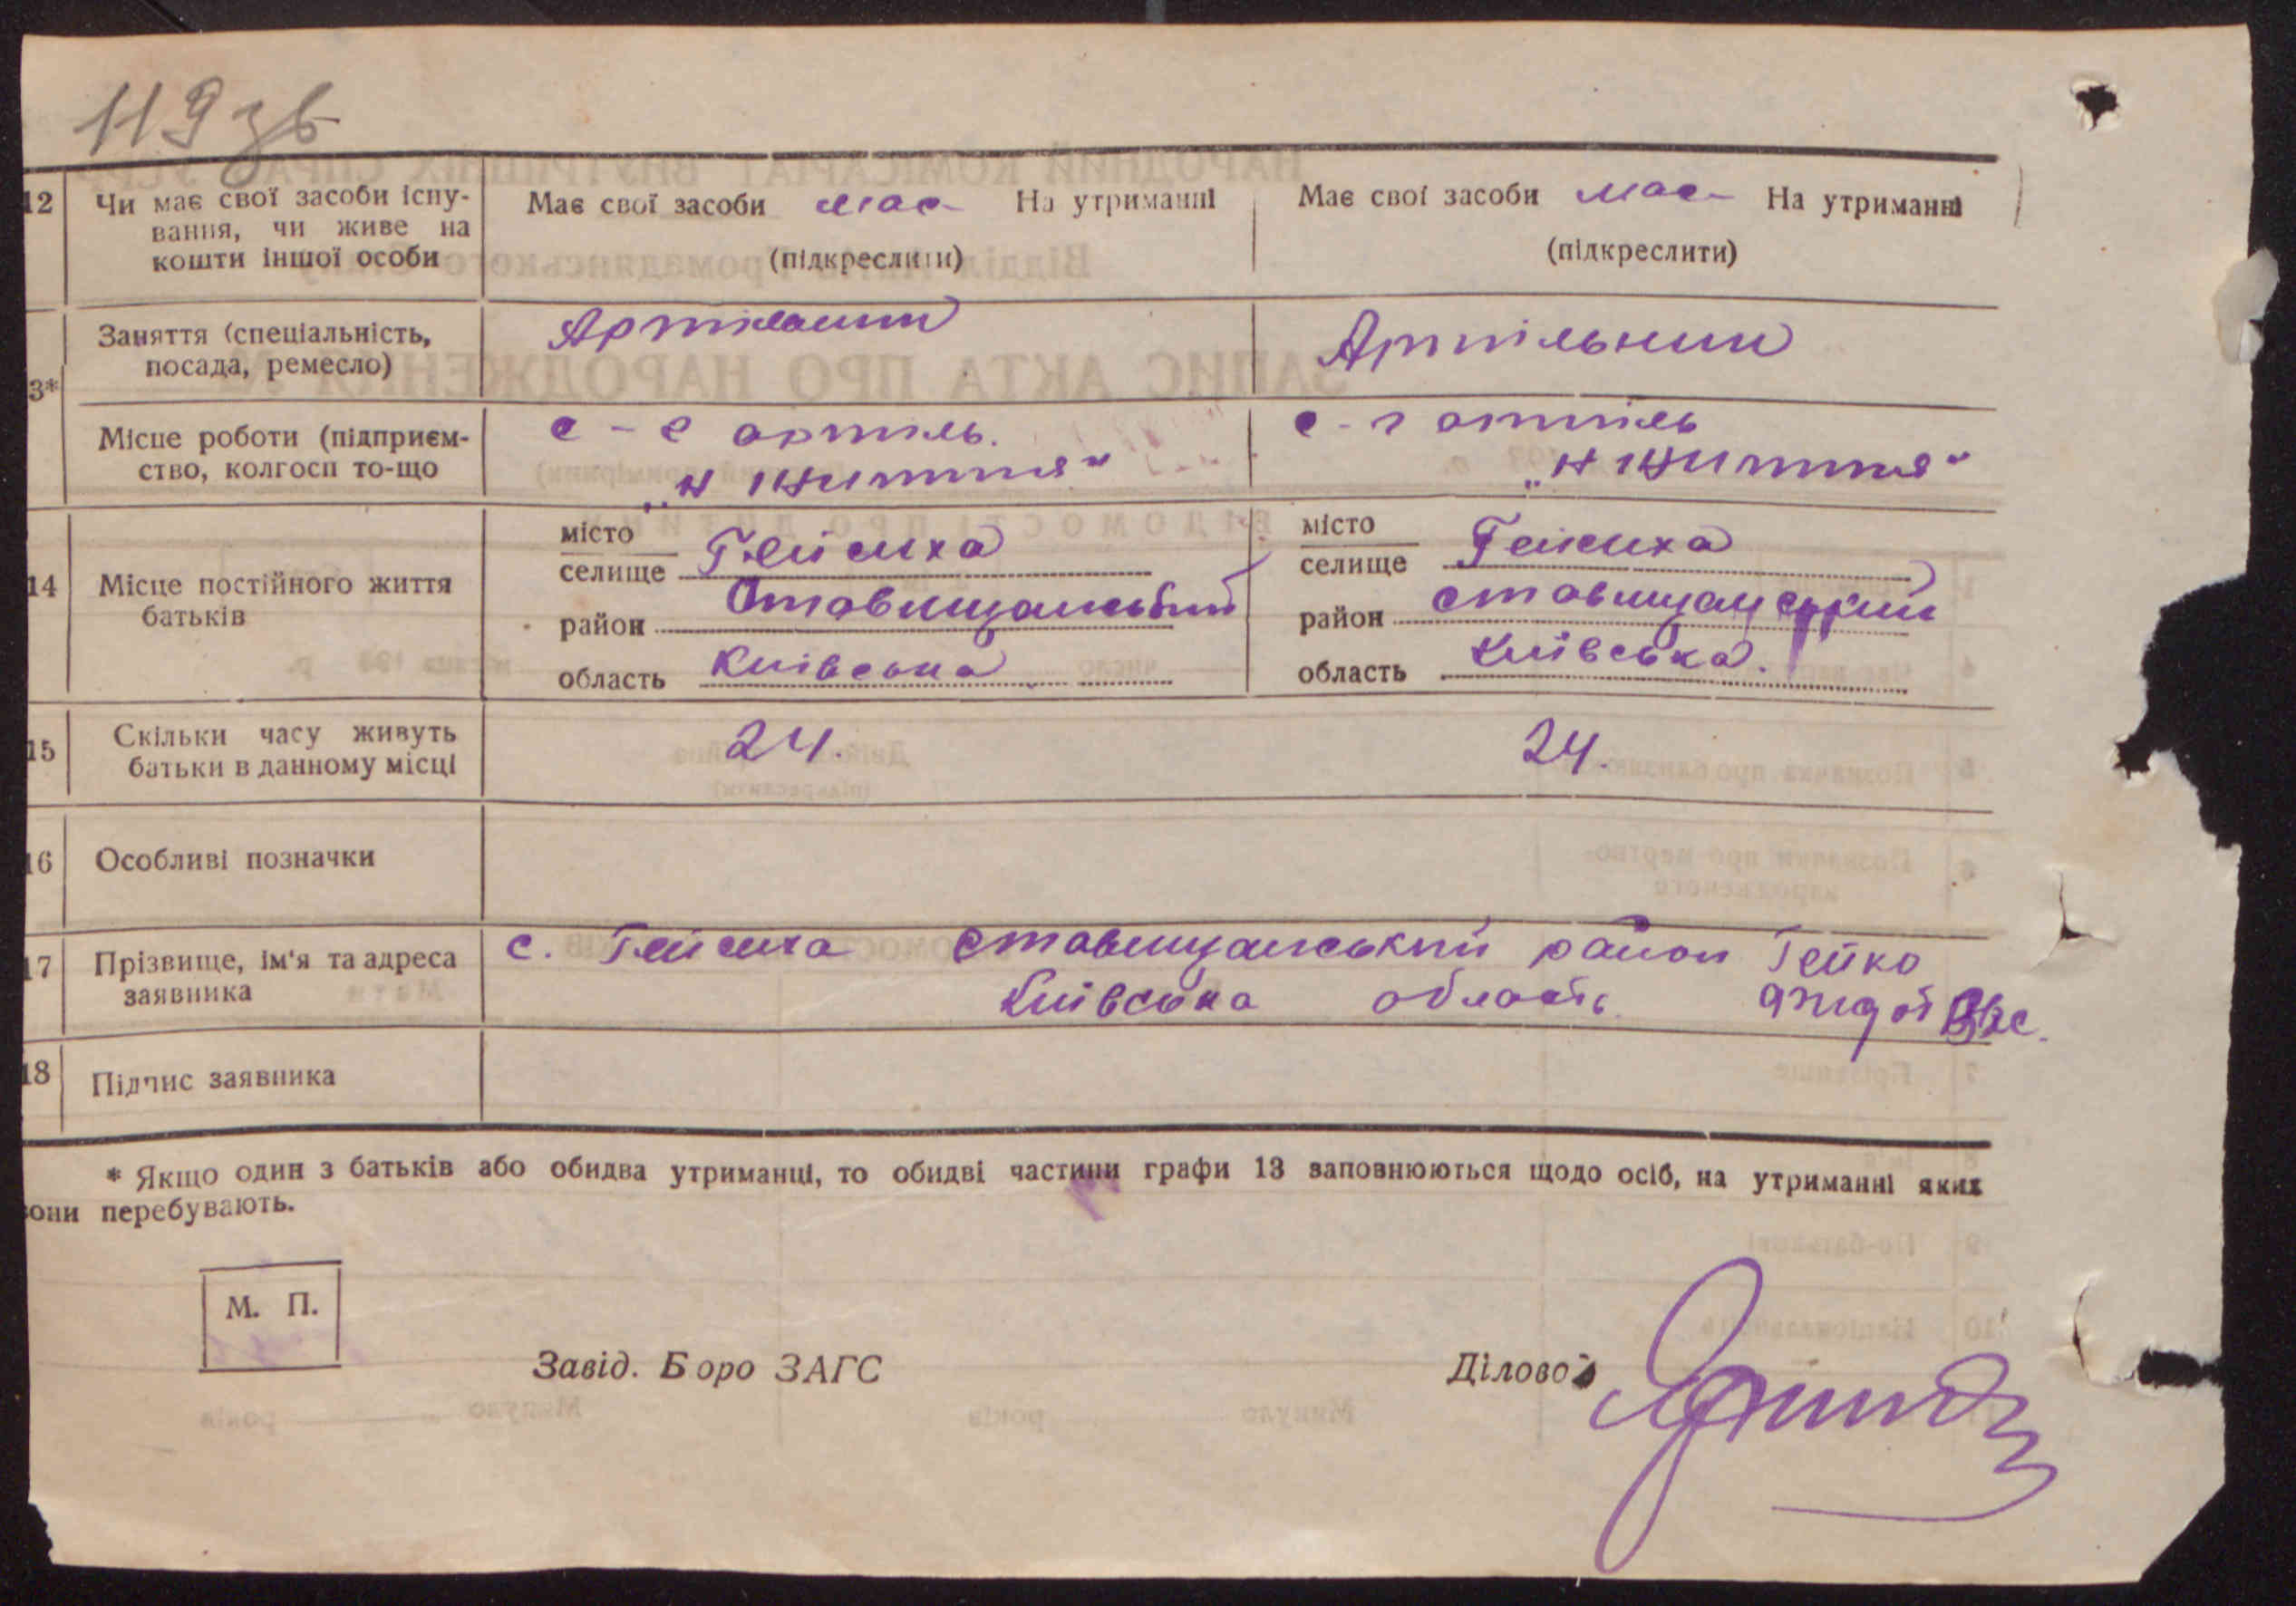 119 зв
12 Чи має свої засоби існу- Має свої засоби має На утриманні Має свої засоби має На утриманні
вання, чи живе на
кошти іншої особи (підкреслити) (підкреслити)
Заняття (спеціальність, Артільний Артільний
посада, ремесло)
3*
Місце роботи (підприєм- с-г артіль. с-г артіль
ство, колгосп то-що „Н життя“ „Н життя“
місто місто
селище Гейсиха селище Гейсиха
14 Місце постійного життя
батьків район Ставищанський район Ставищанський
область Київська область Київська.
15 Скільки часу живуть 24. 24.
батьки в данному місці
16 Особливі позначки
17 Прізвище, ім'я та адреса с. Гейсиха Ставищанський район Гейко
заявника Київська область
18 Підпис заявника
* Якщо один з батьків або обидва утриманці, то обидві частини графи 13 заповнюються щодо осіб, на утриманні яких
вони перебувають.
М. П.
Завід. Боро ЗАГС Діловод